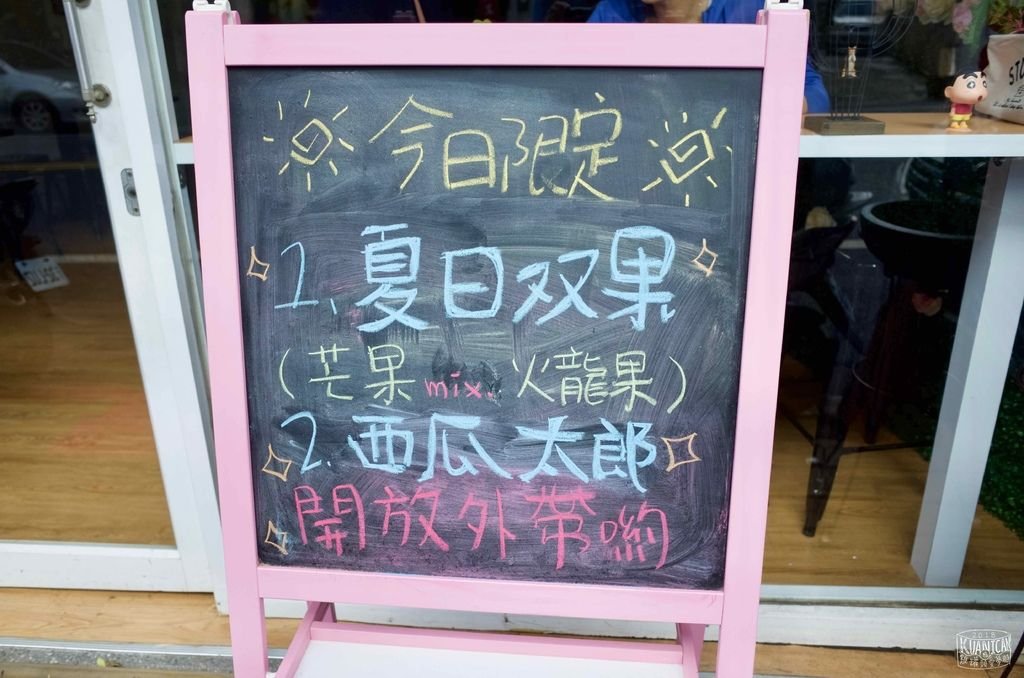 今日限定
1、夏日双果
(芒果mix.火龍果)
2、西瓜太郎
開放外帶喲
2018
KUANTCAN